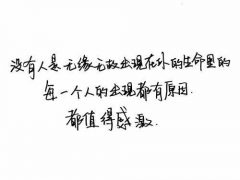 没有人是无缘无故出现在你的生命里的
每一个人的出现都有原因.
都值得感激.